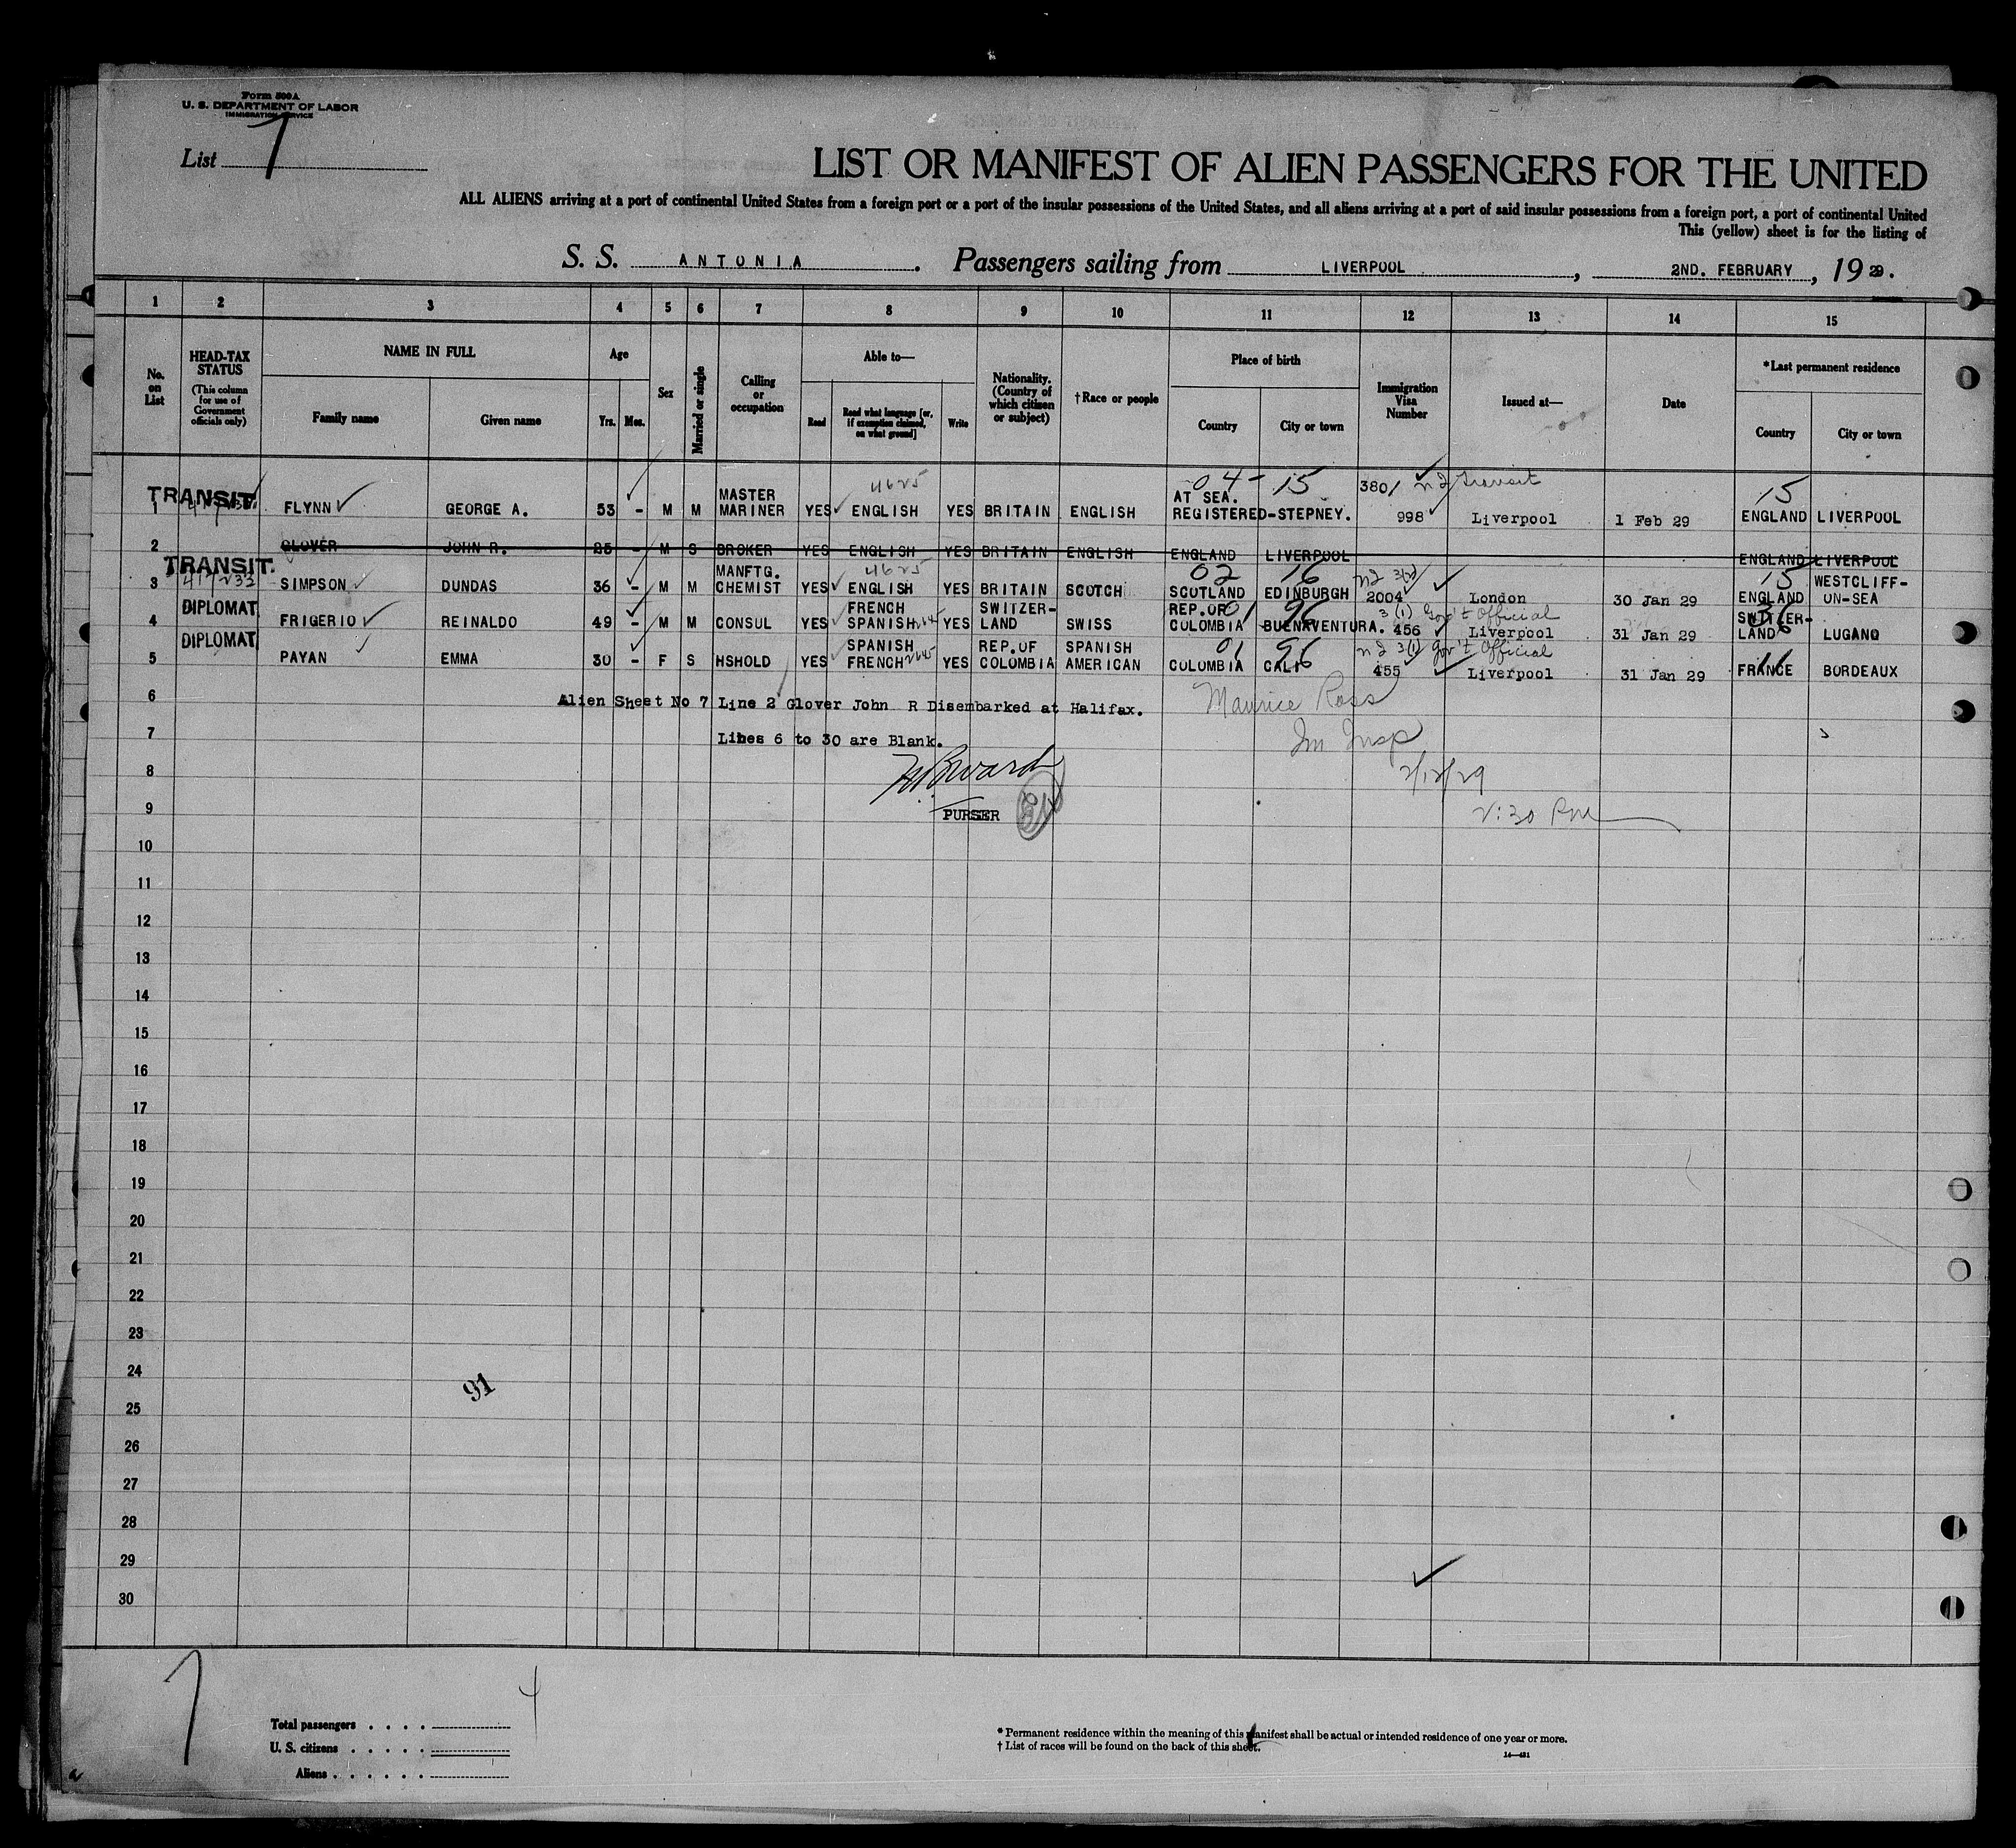 Form 500A
U. S. DEPARTMENT OF LABOR
IMMIGRATION SERVICE
List 7
LIST OR MANIFEST OF ALIEN PASSENGERS FOR THE UNITED
ALL ALIENS arriving at a port of continental United States from a foreign port or a port of the insular possessions of the United States, and all aliens arriving at a port of said insular possessions from a foreign port, a port of continental United
This (yellow) sheet is for the listing of
S. S. ANTONIA. Passengers sailing from LIVERPOOL, 2ND. FEBRUARY, 19 29.
1 2 3 4 5 6 7 8 9 10 11 12 13 14 15
No. on List
HEAD-TAX STATUS (This column for use of Government officials only)
NAME IN FULL
Family name Given name
Age
Yrs. Mos.
Sex
Married or single
Calling or occupation
Able to—
Read Read what language [or, if exemption claimed, on what ground] Write
Nationality. (Country of which citizen or subject)
†Race or people
Place of birth
Country City or town
Immigration Visa Number
Issued at—
Date
*Last permanent residence
Country City or town
4625 04 - 15 3801 Transit 15
TRANSIT.
1 FLYNN GEORGE A. 53 - M M MASTER MARINER YES ENGLISH YES BRITAIN ENGLISH AT SEA. REGISTERED-STEPNEY. 998 Liverpool 1 Feb 29 ENGLAND LIVERPOOL
2 GLOVER JOHN R. 25 - M S BROKER YES ENGLISH YES BRITAIN ENGLISH ENGLAND LIVERPOOL ENGLAND LIVERPOOL
TRANSIT.
4625 02 16 15
3 SIMPSON DUNDAS 36 - M M MANFTG. CHEMIST YES ENGLISH YES BRITAIN SCOTCH SCOTLAND EDINBURGH 2004 London 30 Jan 29 ENGLAND WESTCLIFF-ON-SEA
DIPLOMAT 01 96 3 (1) Gov't Official 36
4 FRIGERIO REINALDO 49 - M M CONSUL YES FRENCH SPANISH YES SWITZER-LAND SWISS REP.OF COLOMBIA BUENAVENTURA. 456 Liverpool 31 Jan 29 SWITZER-LAND LUGANO
DIPLOMAT 01 96 3 (1) Gov't Official 11
5 PAYAN EMMA 30 - F S HSHOLD YES SPANISH FRENCH YES REP.OF COLOMBIA SPANISH AMERICAN COLOMBIA CALI 455 Liverpool 31 Jan 29 FRANCE BORDEAUX
6 Alien Sheet No 7 Line 2 Glover John R Disembarked at Halifax. Maurice Ross
7 Lines 6 to 30 are Blank. Im Insp
8 2/12/29
9 PURSER 2:30 Pm
10
11
12
13
14
15
16
17
18
19
20
21
22
23
24
91
25
26
27
28
29
30
7
4
Total passengers . . . .
U. S. citizens . . . . .
Aliens . . . . . .
* Permanent residence within the meaning of this manifest shall be actual or intended residence of one year or more.
† List of races will be found on the back of this sheet.
14—431